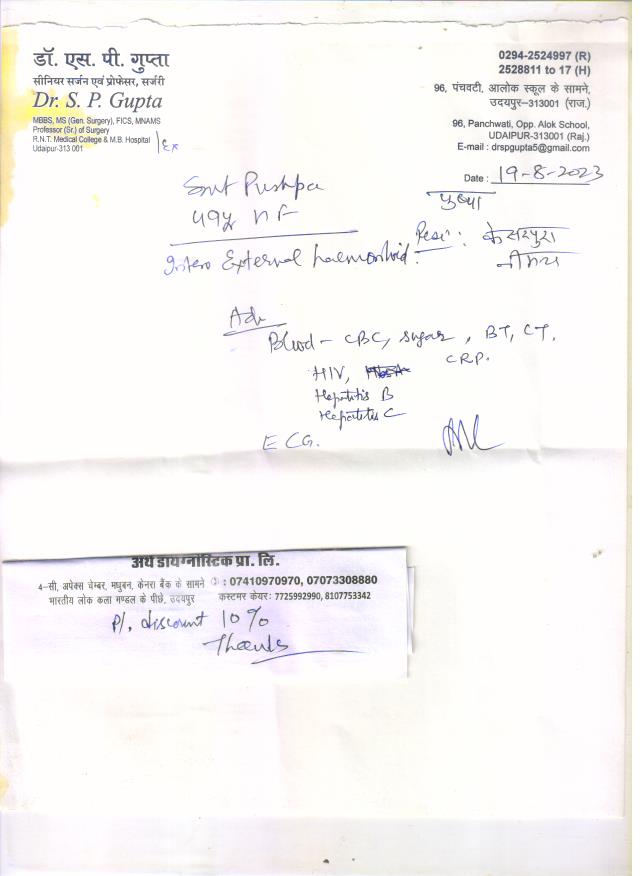 डॉ. एस. पी. गुप्ता
सीनियर सर्जन एवं प्रोफेसर, सर्जरी
Dr. S. P. Gupta
MBBS, MS (Gen. Surgery), FICS, MNAMS
Professor (Sr.) of Surgery
R.N.T. Medical College & M.B. Hospital
Udaipur-313 001
Ex
0294-2524997 (R)
2528811 to 17 (H)
96, पंचवटी, आलोक स्कूल के सामने,
उदयपुर–313001 (राज.)
96, Panchwati, Opp. Alok School,
UDAIPUR-313001 (Raj.)
E-mail : drspgupta5@gmail.com
Date : 19-8-2023
Smt Pushpa
पुष्पा
49y
केसरपुरा
Intero External haemorrhoid.
Adv
Blood - CBC, sugar, BT, CT,
CRP.
HIV,
Hepatitis B
Hepatitis C
ECG.
अर्थ डायग्नोस्टिक प्रा. लि.
4–सी, अपेक्स चेम्बर, मधुबन, केनरा बैंक के सामने : 07410970970, 07073308880
भारतीय लोक कला मण्डल के पीछे, उदयपुर कस्टमर केयर: 7725992990, 8107753342
P/. discount 10%
Thanks